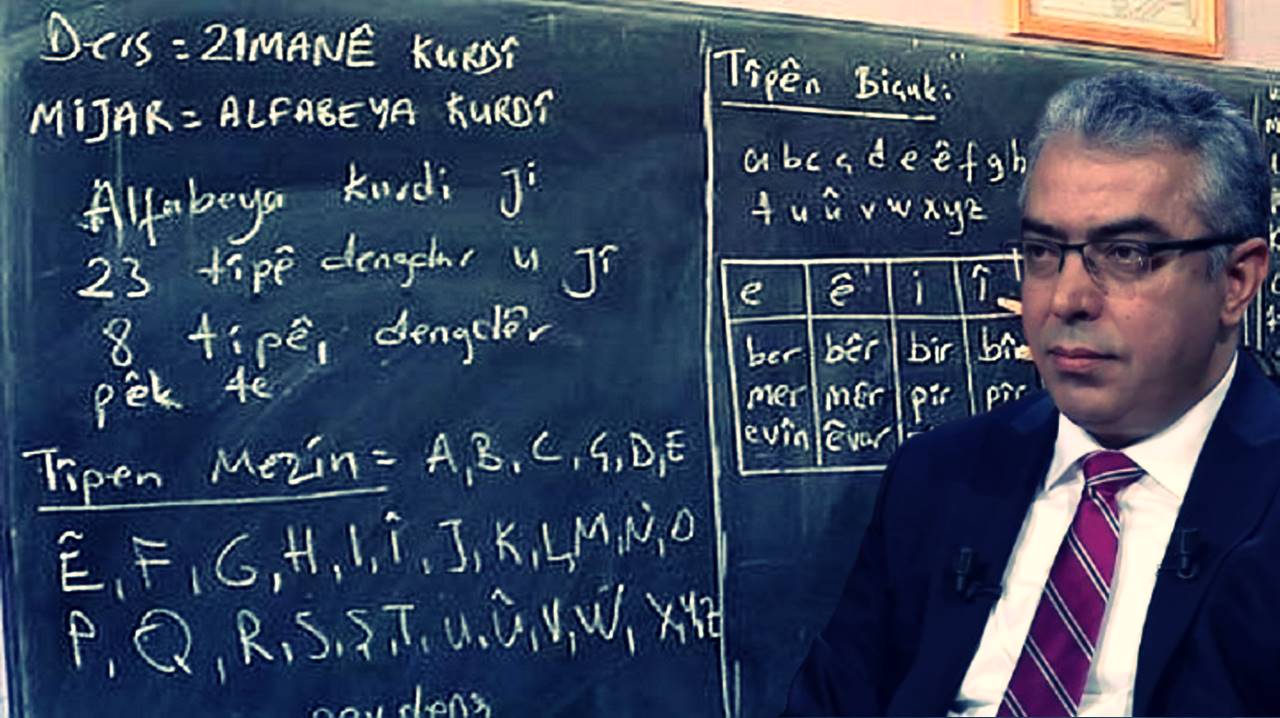 Ders = ZIMANÊ KURDÎ
MIJAR = ALFABEYA KURDÎ
Alfabeya kurdi ji
23 tîpê dengdar u jî
8 tîpê, dengdêr
pêk te
Tîpen Mezin = A, B, C, Ç, D, E
Ê, F, G, H, I, Î, J, K, L, M, N, O
P, Q, R, S, Ş, T, U, Û, V, W, X, Y, Z
Tîpên Biçuk:
a b c ç d e ê f g h
t u û v w x y z
e ê i î
ber bêr bir
mer mêr pir pîr
evîn êvar